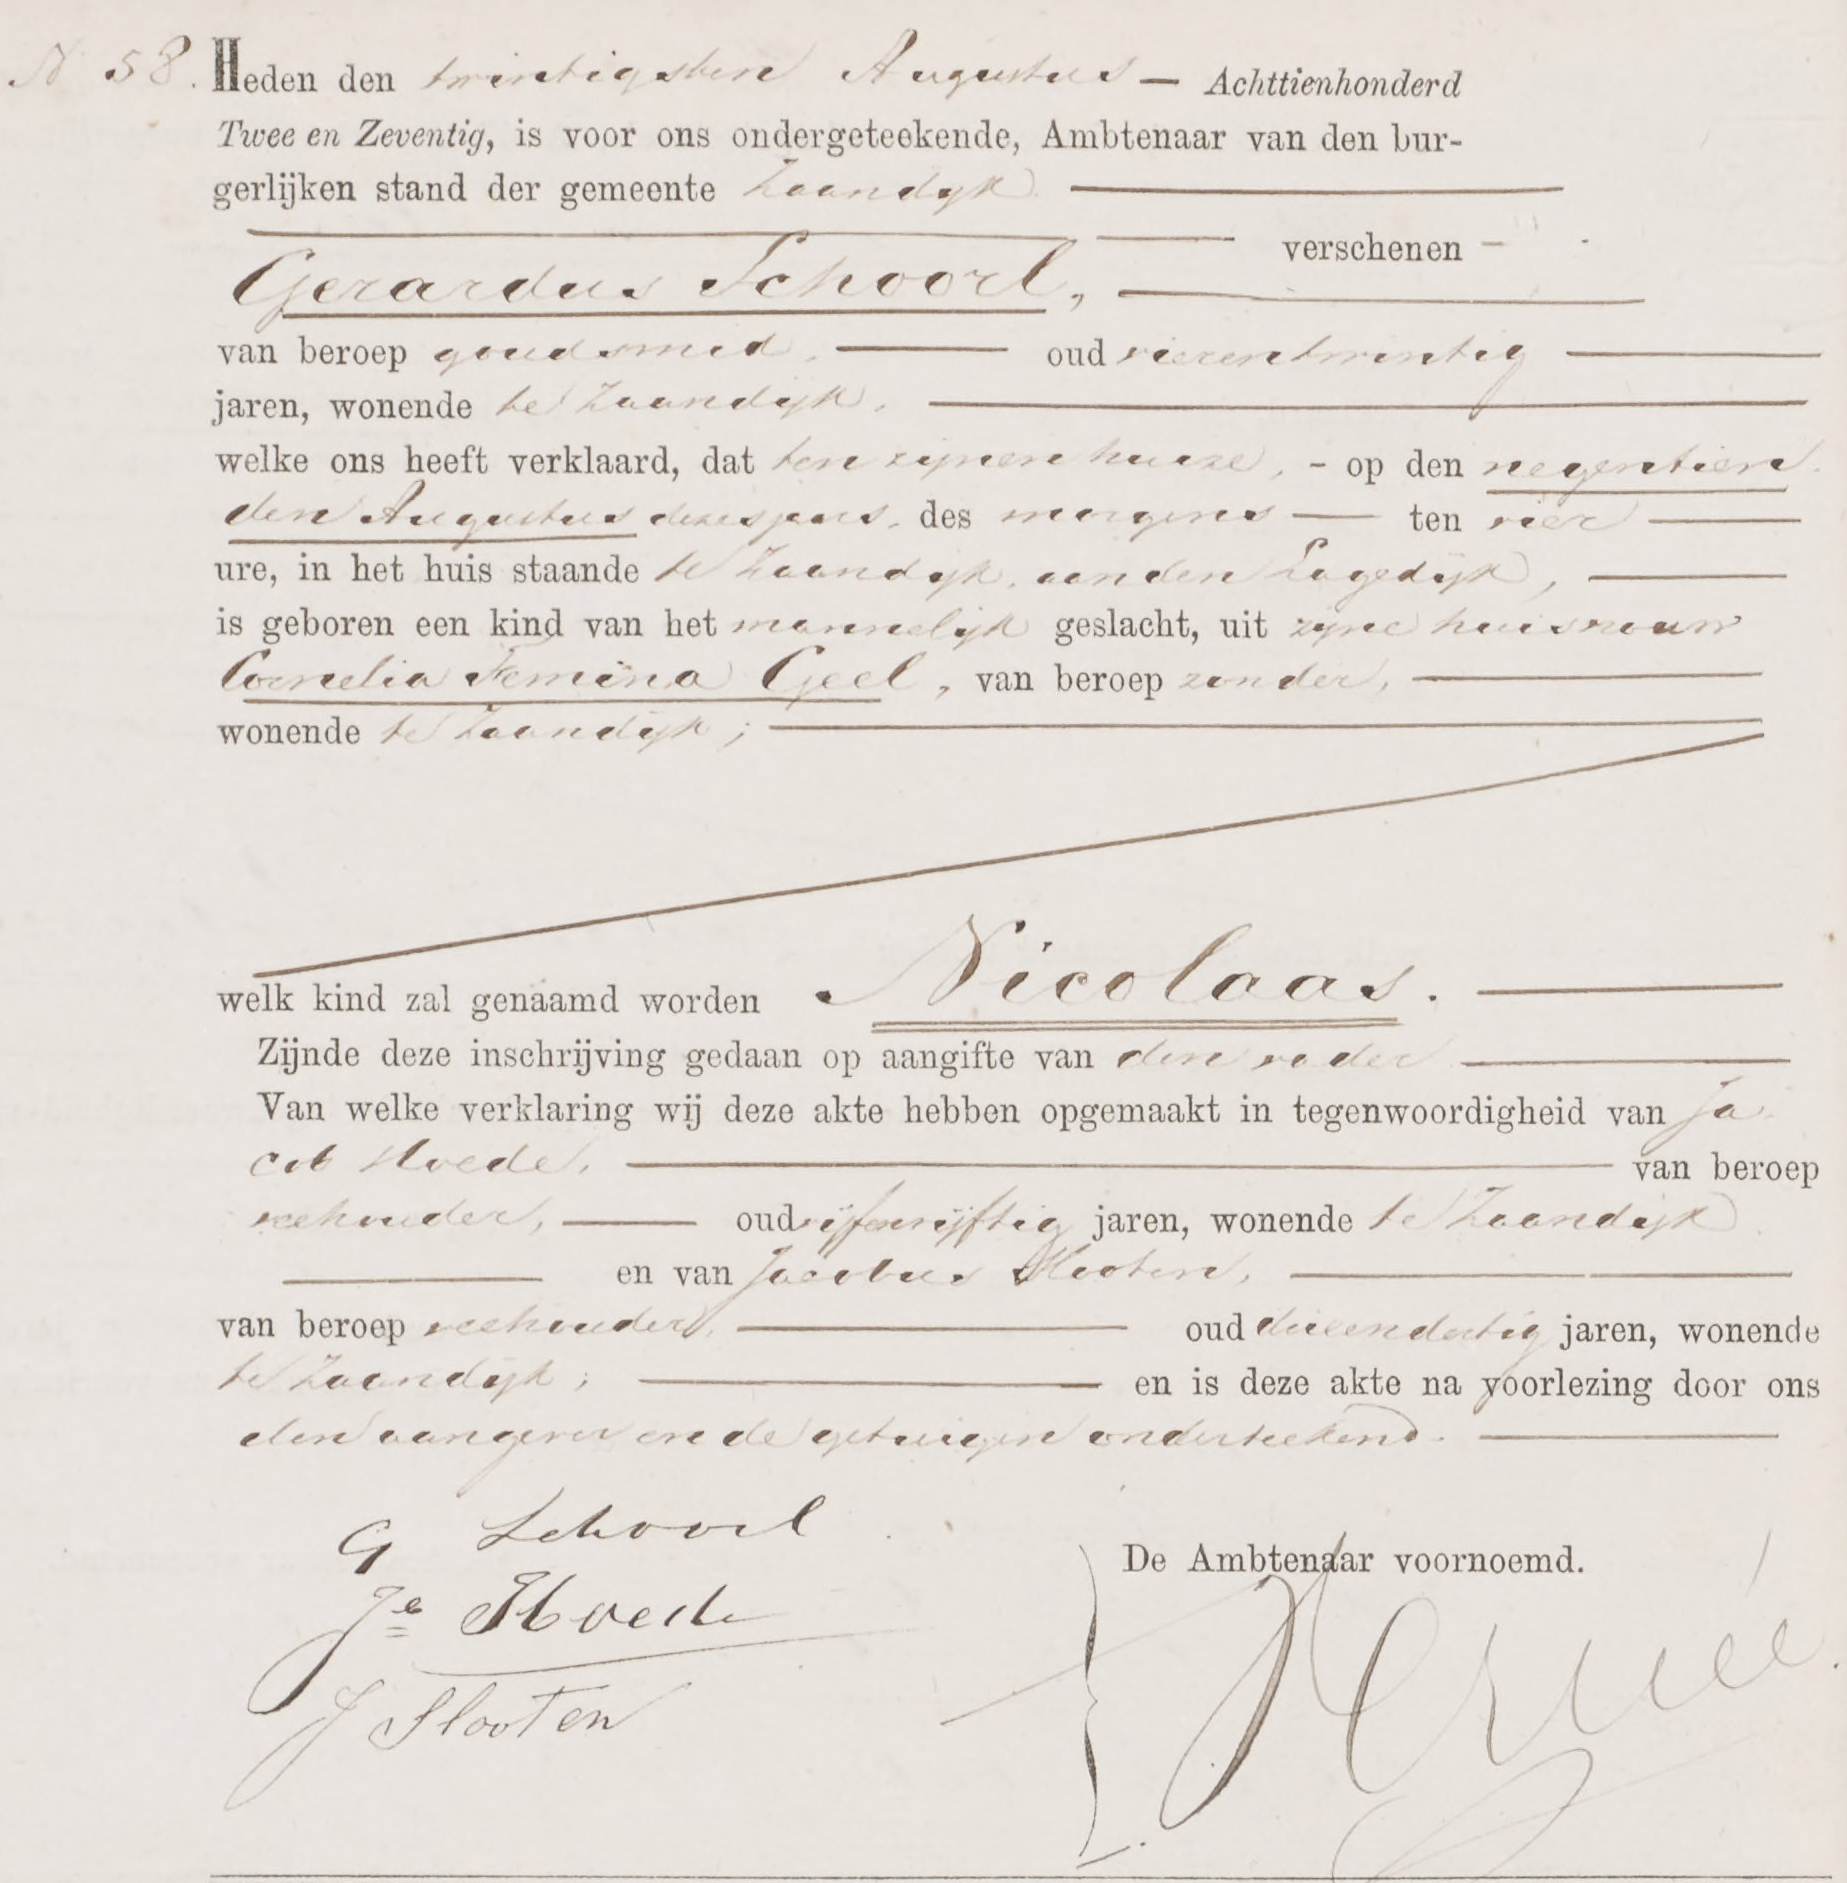 N 58. Heden den twintigsten Augustus — Achttienhonderd
Twee en Zeventig, is voor ons ondergeteekende, Ambtenaar van den bur-
gerlijken stand der gemeente Zaandyk
verschenen
Gerardus Schoorl,
van beroep goudsmid, oud vierentwintig
jaren, wonende te Zaandijk,
welke ons heeft verklaard, dat ten zijnen huize, - op den negentien
den Augustus dezes jaars, des morgens — ten vier
ure, in het huis staande te Zaandijk, aan den Lagedijk,
is geboren een kind van het mannelijk geslacht, uit zijne huisvrouw
Cornelia Femina Geel, van beroep zonder,
wonende te Zaandijk;
welk kind zal genaamd worden Nicolaas.
Zijnde deze inschrijving gedaan op aangifte van den vader
Van welke verklaring wij deze akte hebben opgemaakt in tegenwoordigheid van Ja
cob Hoede, van beroep
veehouder, oud vijfenvijftig jaren, wonende te Zaandijk
en van Jacobus Slooten,
van beroep veehouder, oud drieendertig jaren, wonende
te Zaandijk; en is deze akte na voorlezing door ons
den aangever en de getuigen onderteekend.
G Schoorl
De Ambtenaar voornoemd.
Jb Hoede
J Slooten